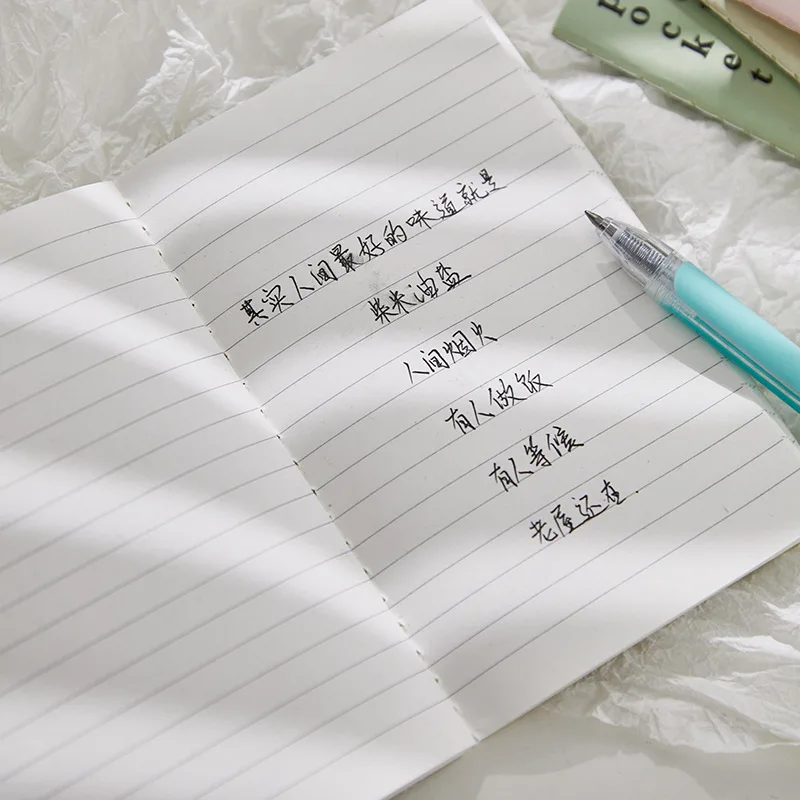 其实人间最好的味道就是
柴米油盐
人间烟火
有人做饭
有人等候
老屋还在.
pocket